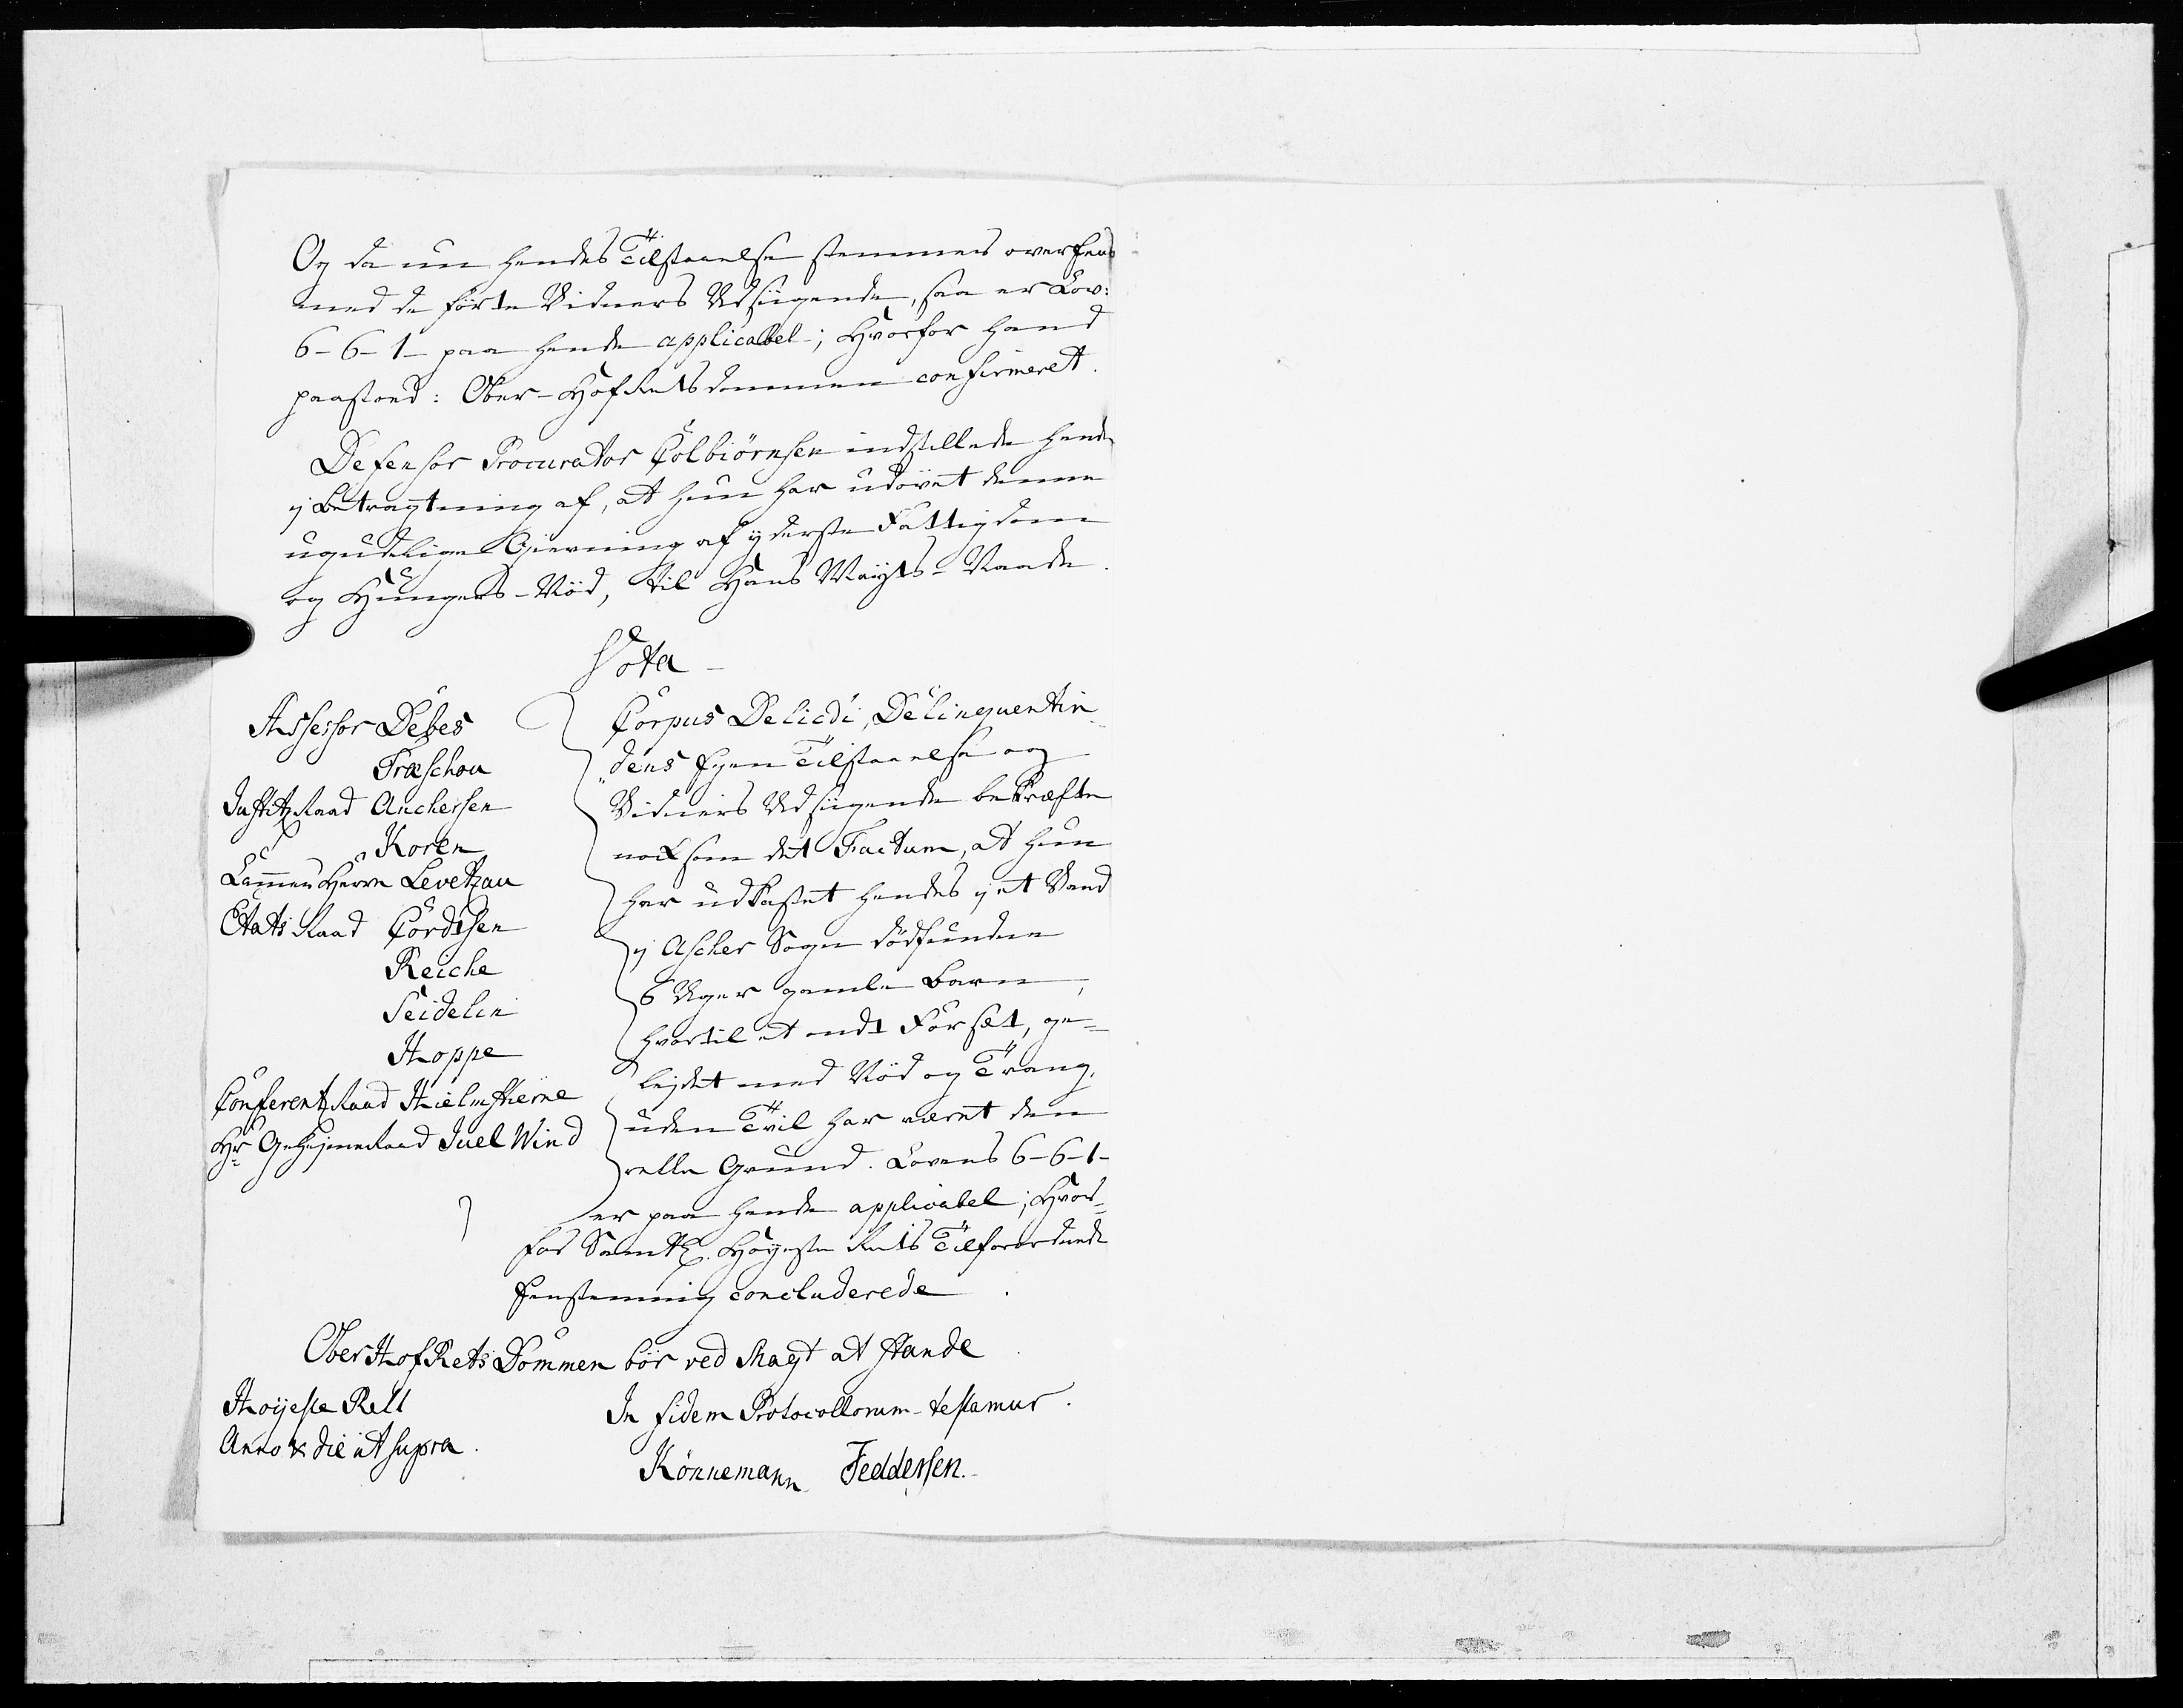 Og da nu hendes Tilstaaelse stemmer overeens
med de förte Vidners Udsiigende, saa er Lov:
6-6-1- paa hende applicabel; Hvorfor hand
paastoed: Ober-HofRetsdommen confirmeret.
Defensor Procurator Colbiörnsen indstillede hende
j Betragtning af, at hun har udövet denne
ugudelige Gierning af yderste Fattigdom
og Hungers-Nöd, til Hans Mayts-Naade.
Vota
Assessor Debes
Træschou
JustitzRaad Anchersen
Koren
CammerHerre Levetzau
EtatsRaad Cordtsen
Reiche
Seidelin
Hoppe
ConferentzRaad Hielmstierne
Hr GeheimeRaad Juel Wind
Corpus Delicti, Delinquentin-
dens Egen Tilstaaelse og
Vidners Udsiigende bekræfte
noksom det Factum, at hun
har udkastet hendes j et Vand
j Ascher Sogn dödfundne
6 Uger gamle Barn,
hvortil et ondt Forsæt, ge-
lejdet med Nöd og Trang,
uden Tvil har været den
relle Grund. Lovens 6-6-1-
er paa hende applicabel; Hvor-
for Samtl. Höyeste Rets Tilforordnede
Eenstemmig concluderede
OberHofRets Dommen bör ved Magt at stande
Höyeste Rett
Anno & die ut supra.
In fidem Protocollorum testamur.
Könnemann Feddersen.